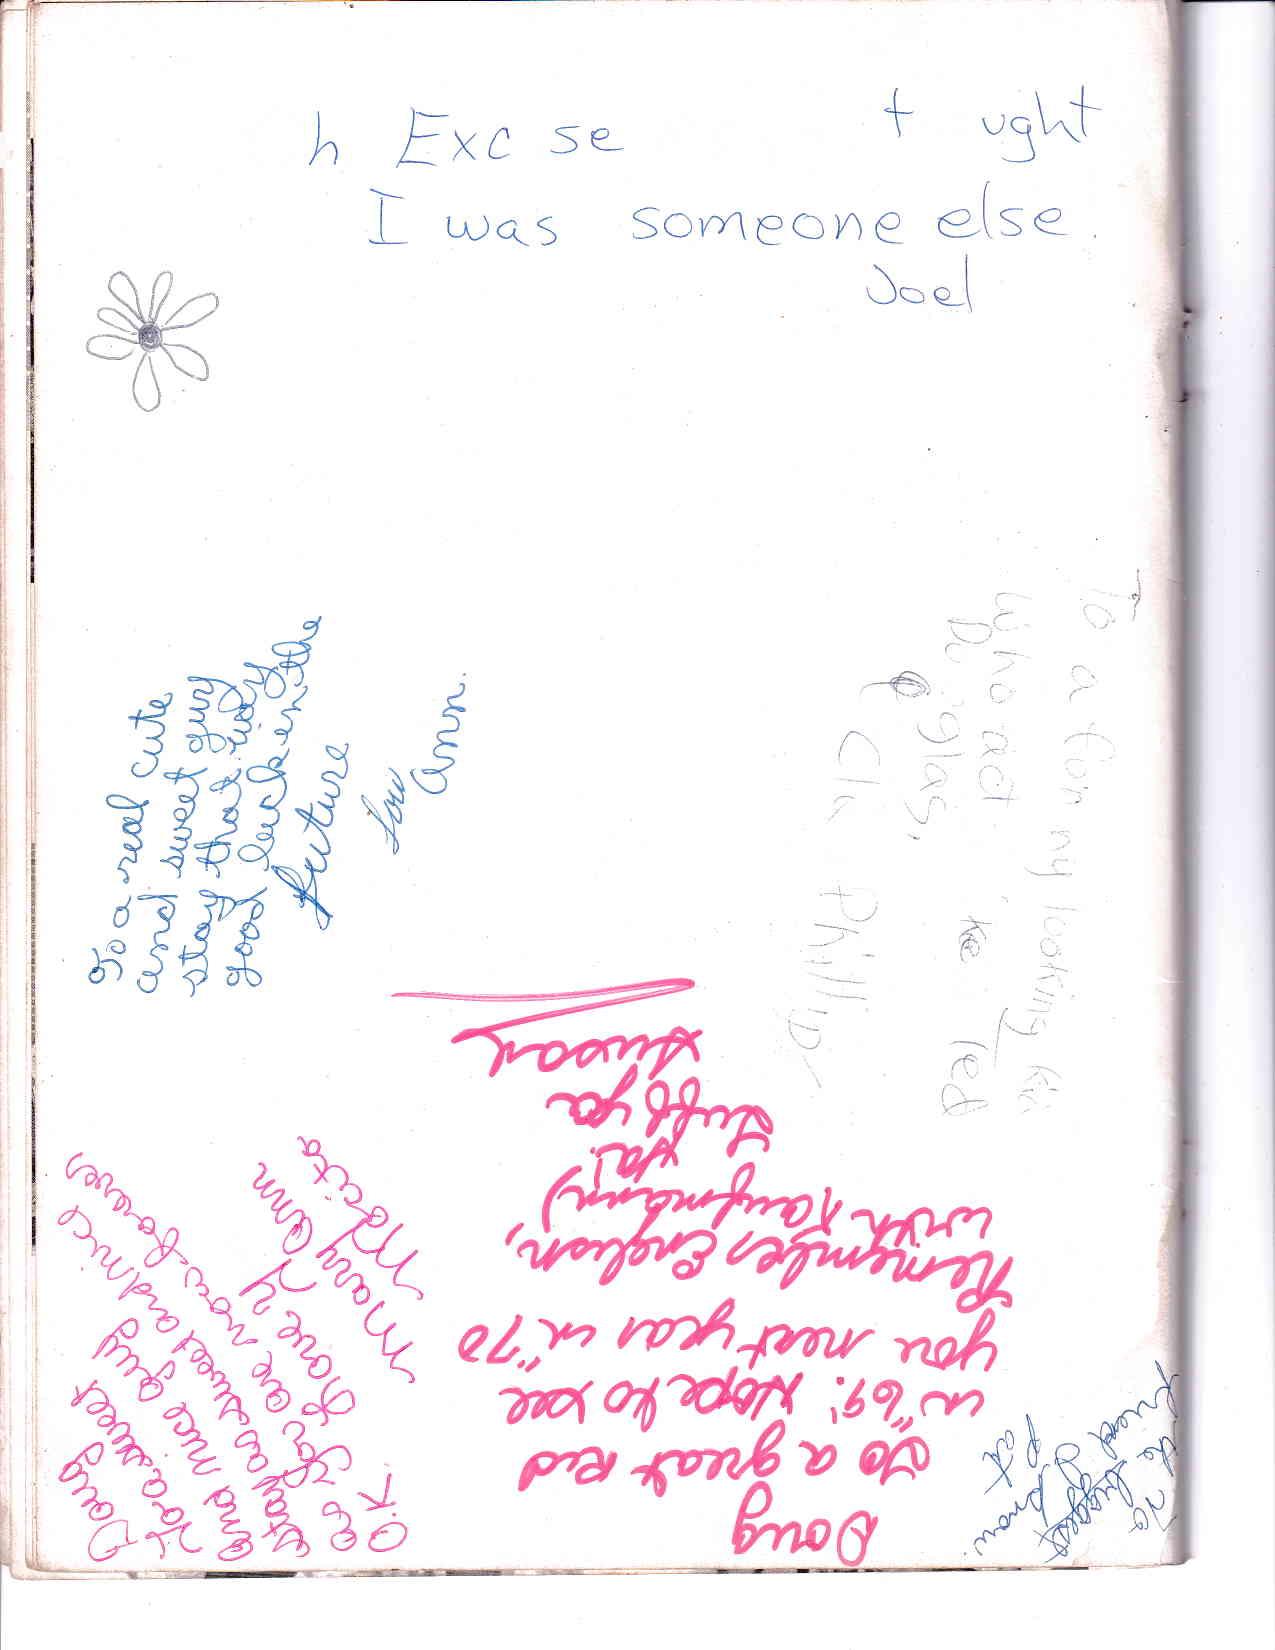 h Exc se t ught
I was someone else.
Joel
To a real cute
and sweet guy
stay that way
good luck in the
future
Lou
Ann.
To a looking
who act
glas,
Phillip
Doug
To a great kid
in "69". Hope to see
you next year in "70
Remember English,
with Kaufmann)
Ya!
Luff ya
Susan
Doug
To a sweet
and nice guy
stay as sweet and nice
as you are now & forever
O.K.
Love ya
Mary Ann
To
the biggest
friend
I know.